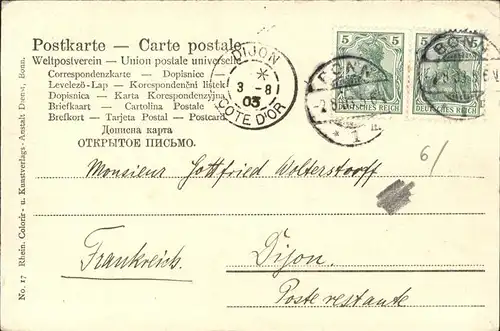 Postkarte — Carte postale
Weltpostverein — Union postale universelle
Correspondenzkarte — Dopisnice —
Levelező-Lap — Korespondenční lístek
Dopisnica — Karta Korespondenzyjna
Briefkaart — Cartolina Postale —
Brefkort — Tarjeta Postal — Postcard
Дописна карта
ОТКРЫТОЕ ПИСЬМО.
DIJON
3 - 8
03
COTE D'OR
5 5
DEUTSCHES REICH
BONN
2.8.03
* 1
5 5
DEUTSCHES REICH
BONN
6/
Monsieur Gottfried Wolterstorff
Frankreich.
Dijon.
Poste restante
No. 17 Rhein. Colorir- u. Kunstverlags-Anstalt Drenst, Bonn.